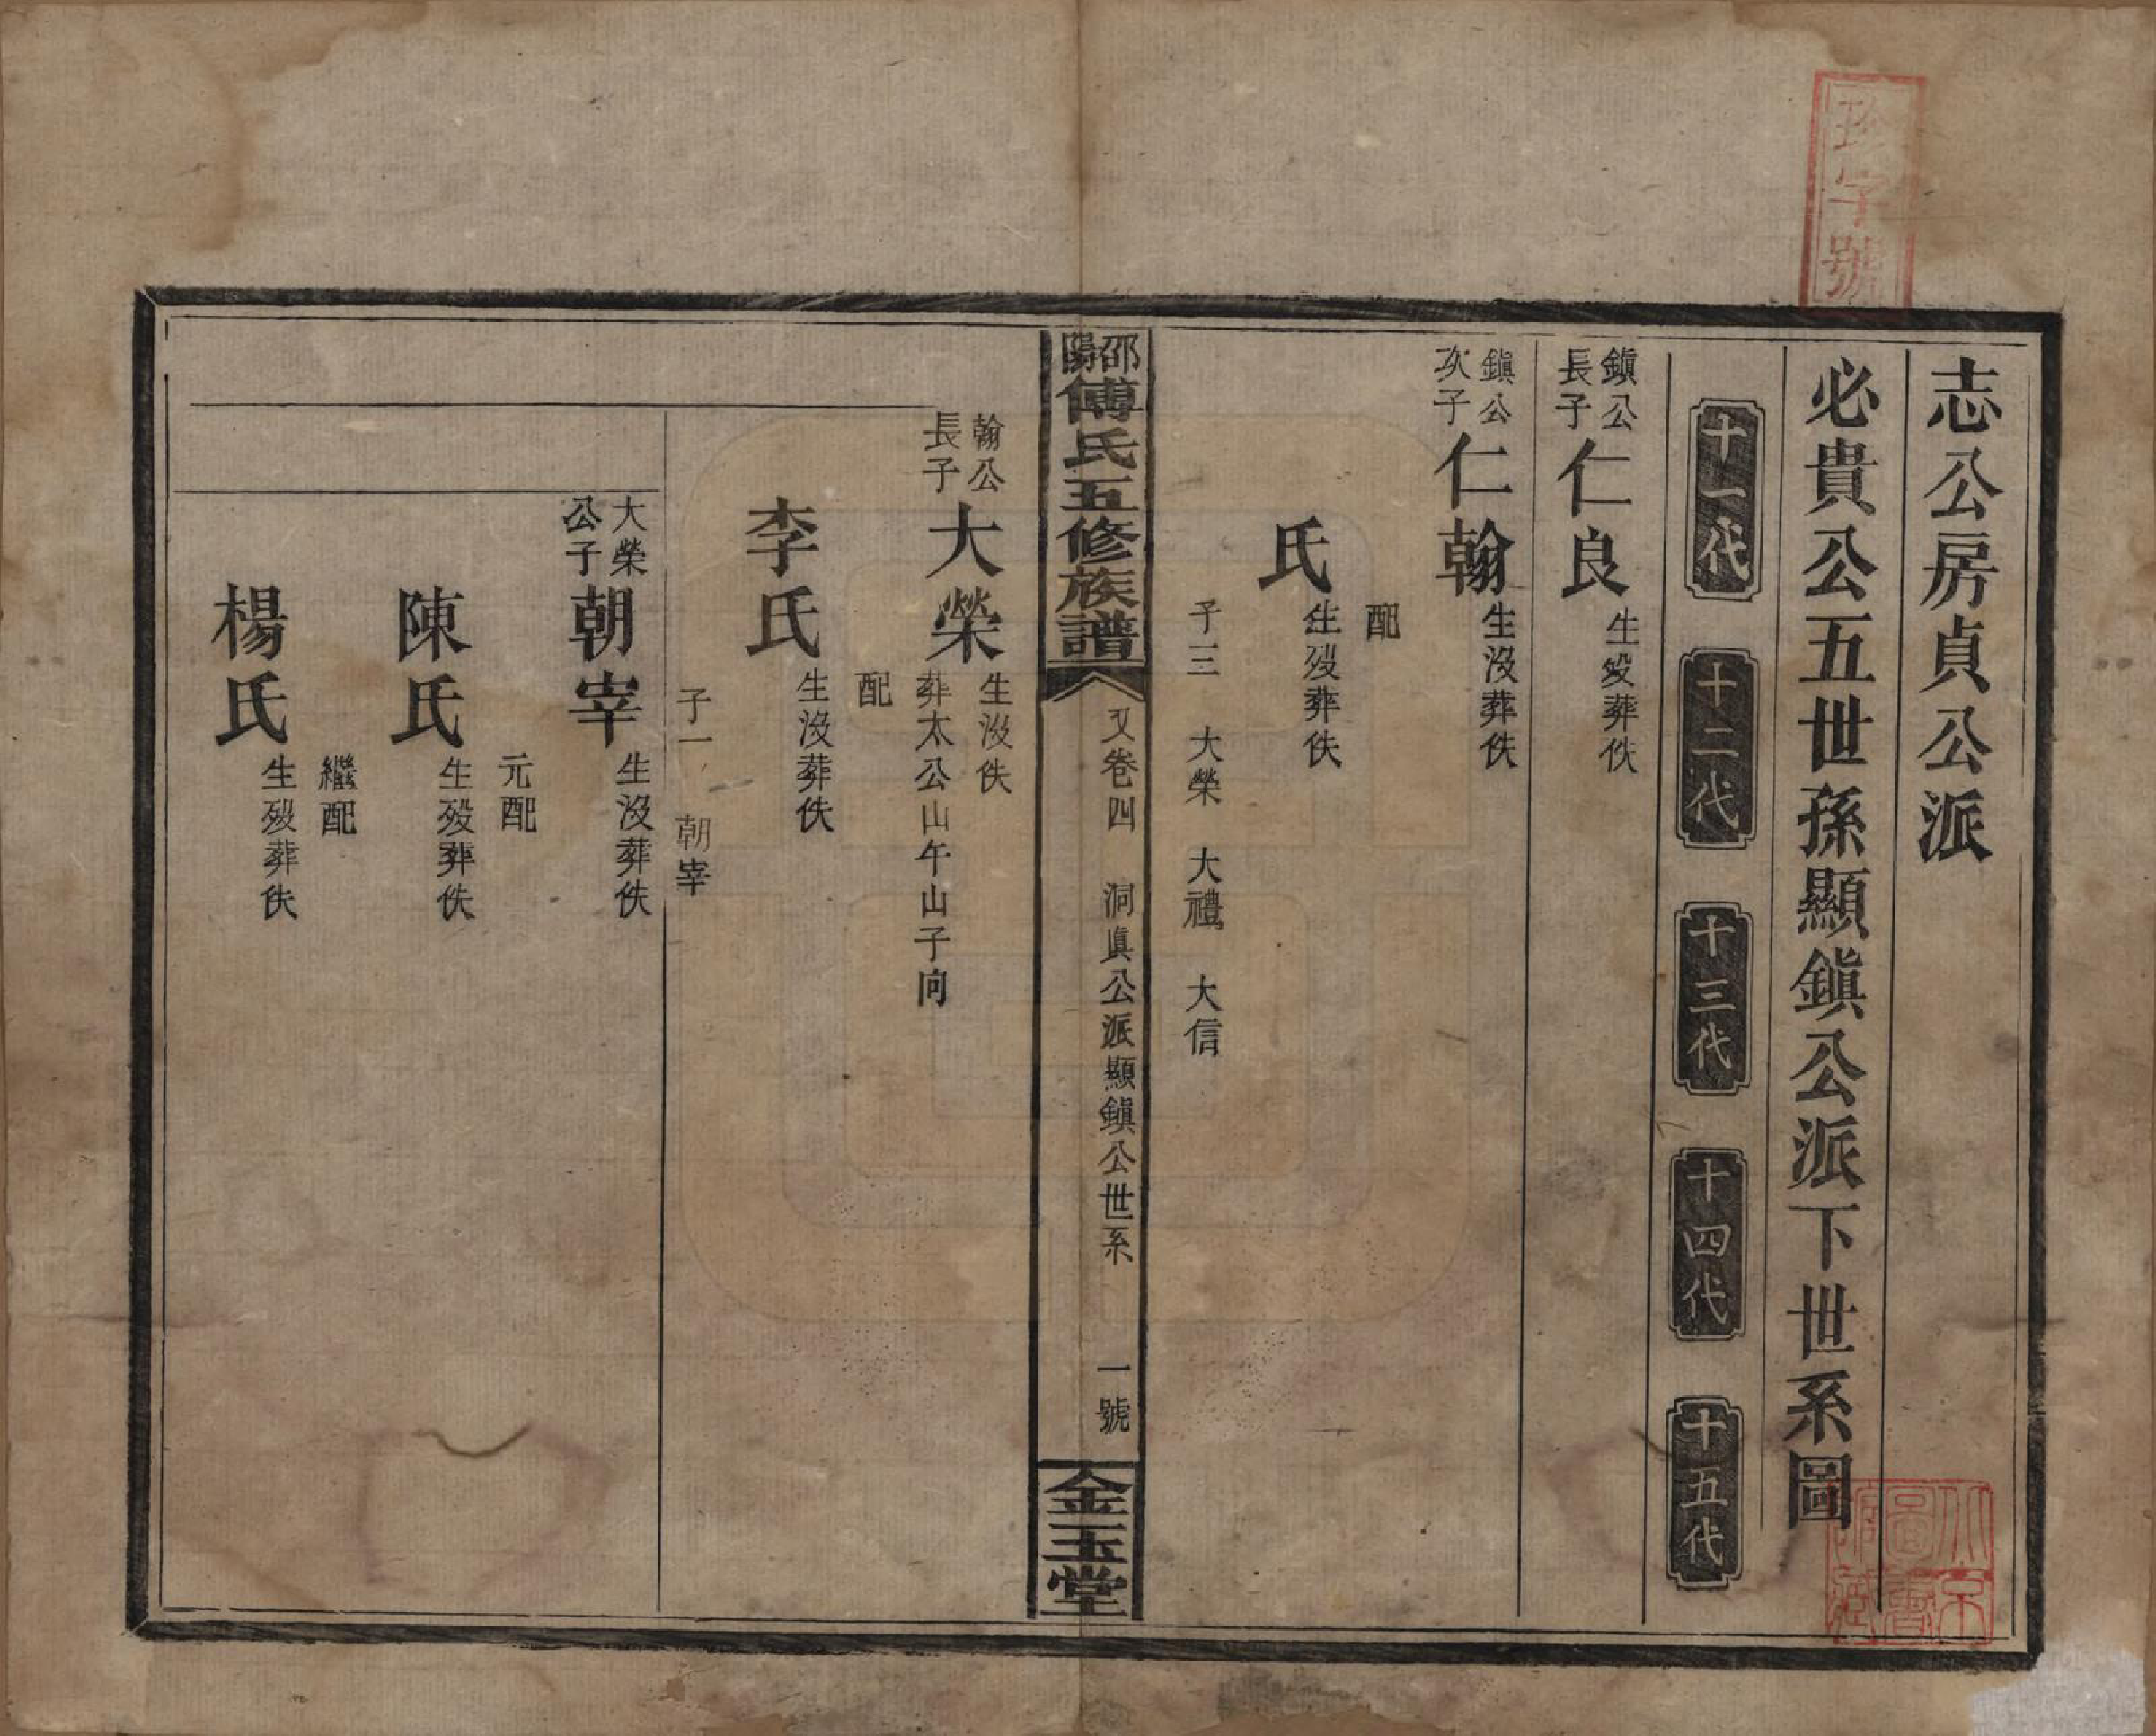 珍字號
志公房貞公派
必貴公五世孫顯鎮公派下世系圖
十一代
十二代
十三代
十四代
十五代
鎮公
長子
仁良
生歿葬佚
鎮公
次子
仁翰
生沒葬佚
配
氏
生歿葬佚
子三 大榮 大禮 大信
邵陽傅氏五修族譜
又卷四 洞眞公派顯鎮公世系 一號
金玉堂
翰公
長子
大榮
生沒佚
葬太公山午山子向
配
李氏
生沒葬佚
子一 朝宰
大榮
公子
朝宰
生沒葬佚
元配
陳氏
生歿葬佚
繼配
楊氏
生歿葬佚